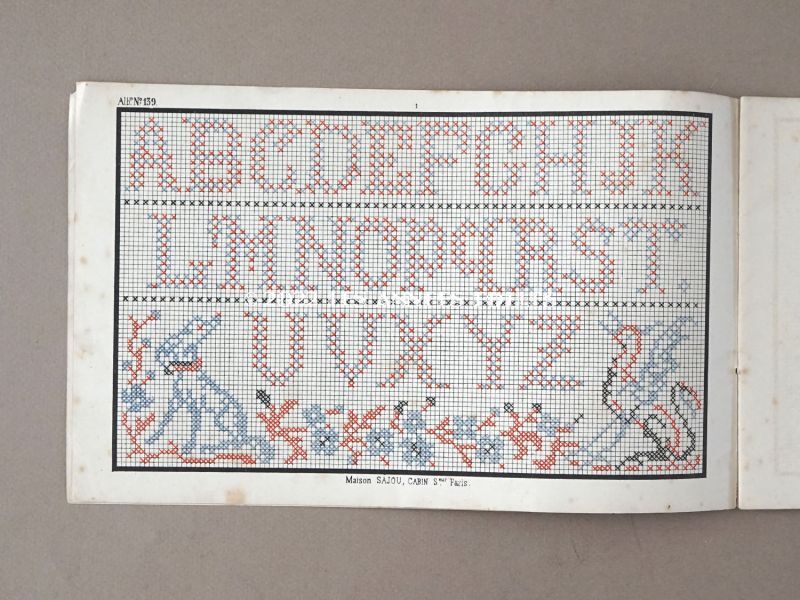 Alb. Nº 139.
1
ABCDEFGHJK
LMNOPQRST.
UVXYZ
Maison SAJOU, CABIN Sᵉᵘʳ Paris.